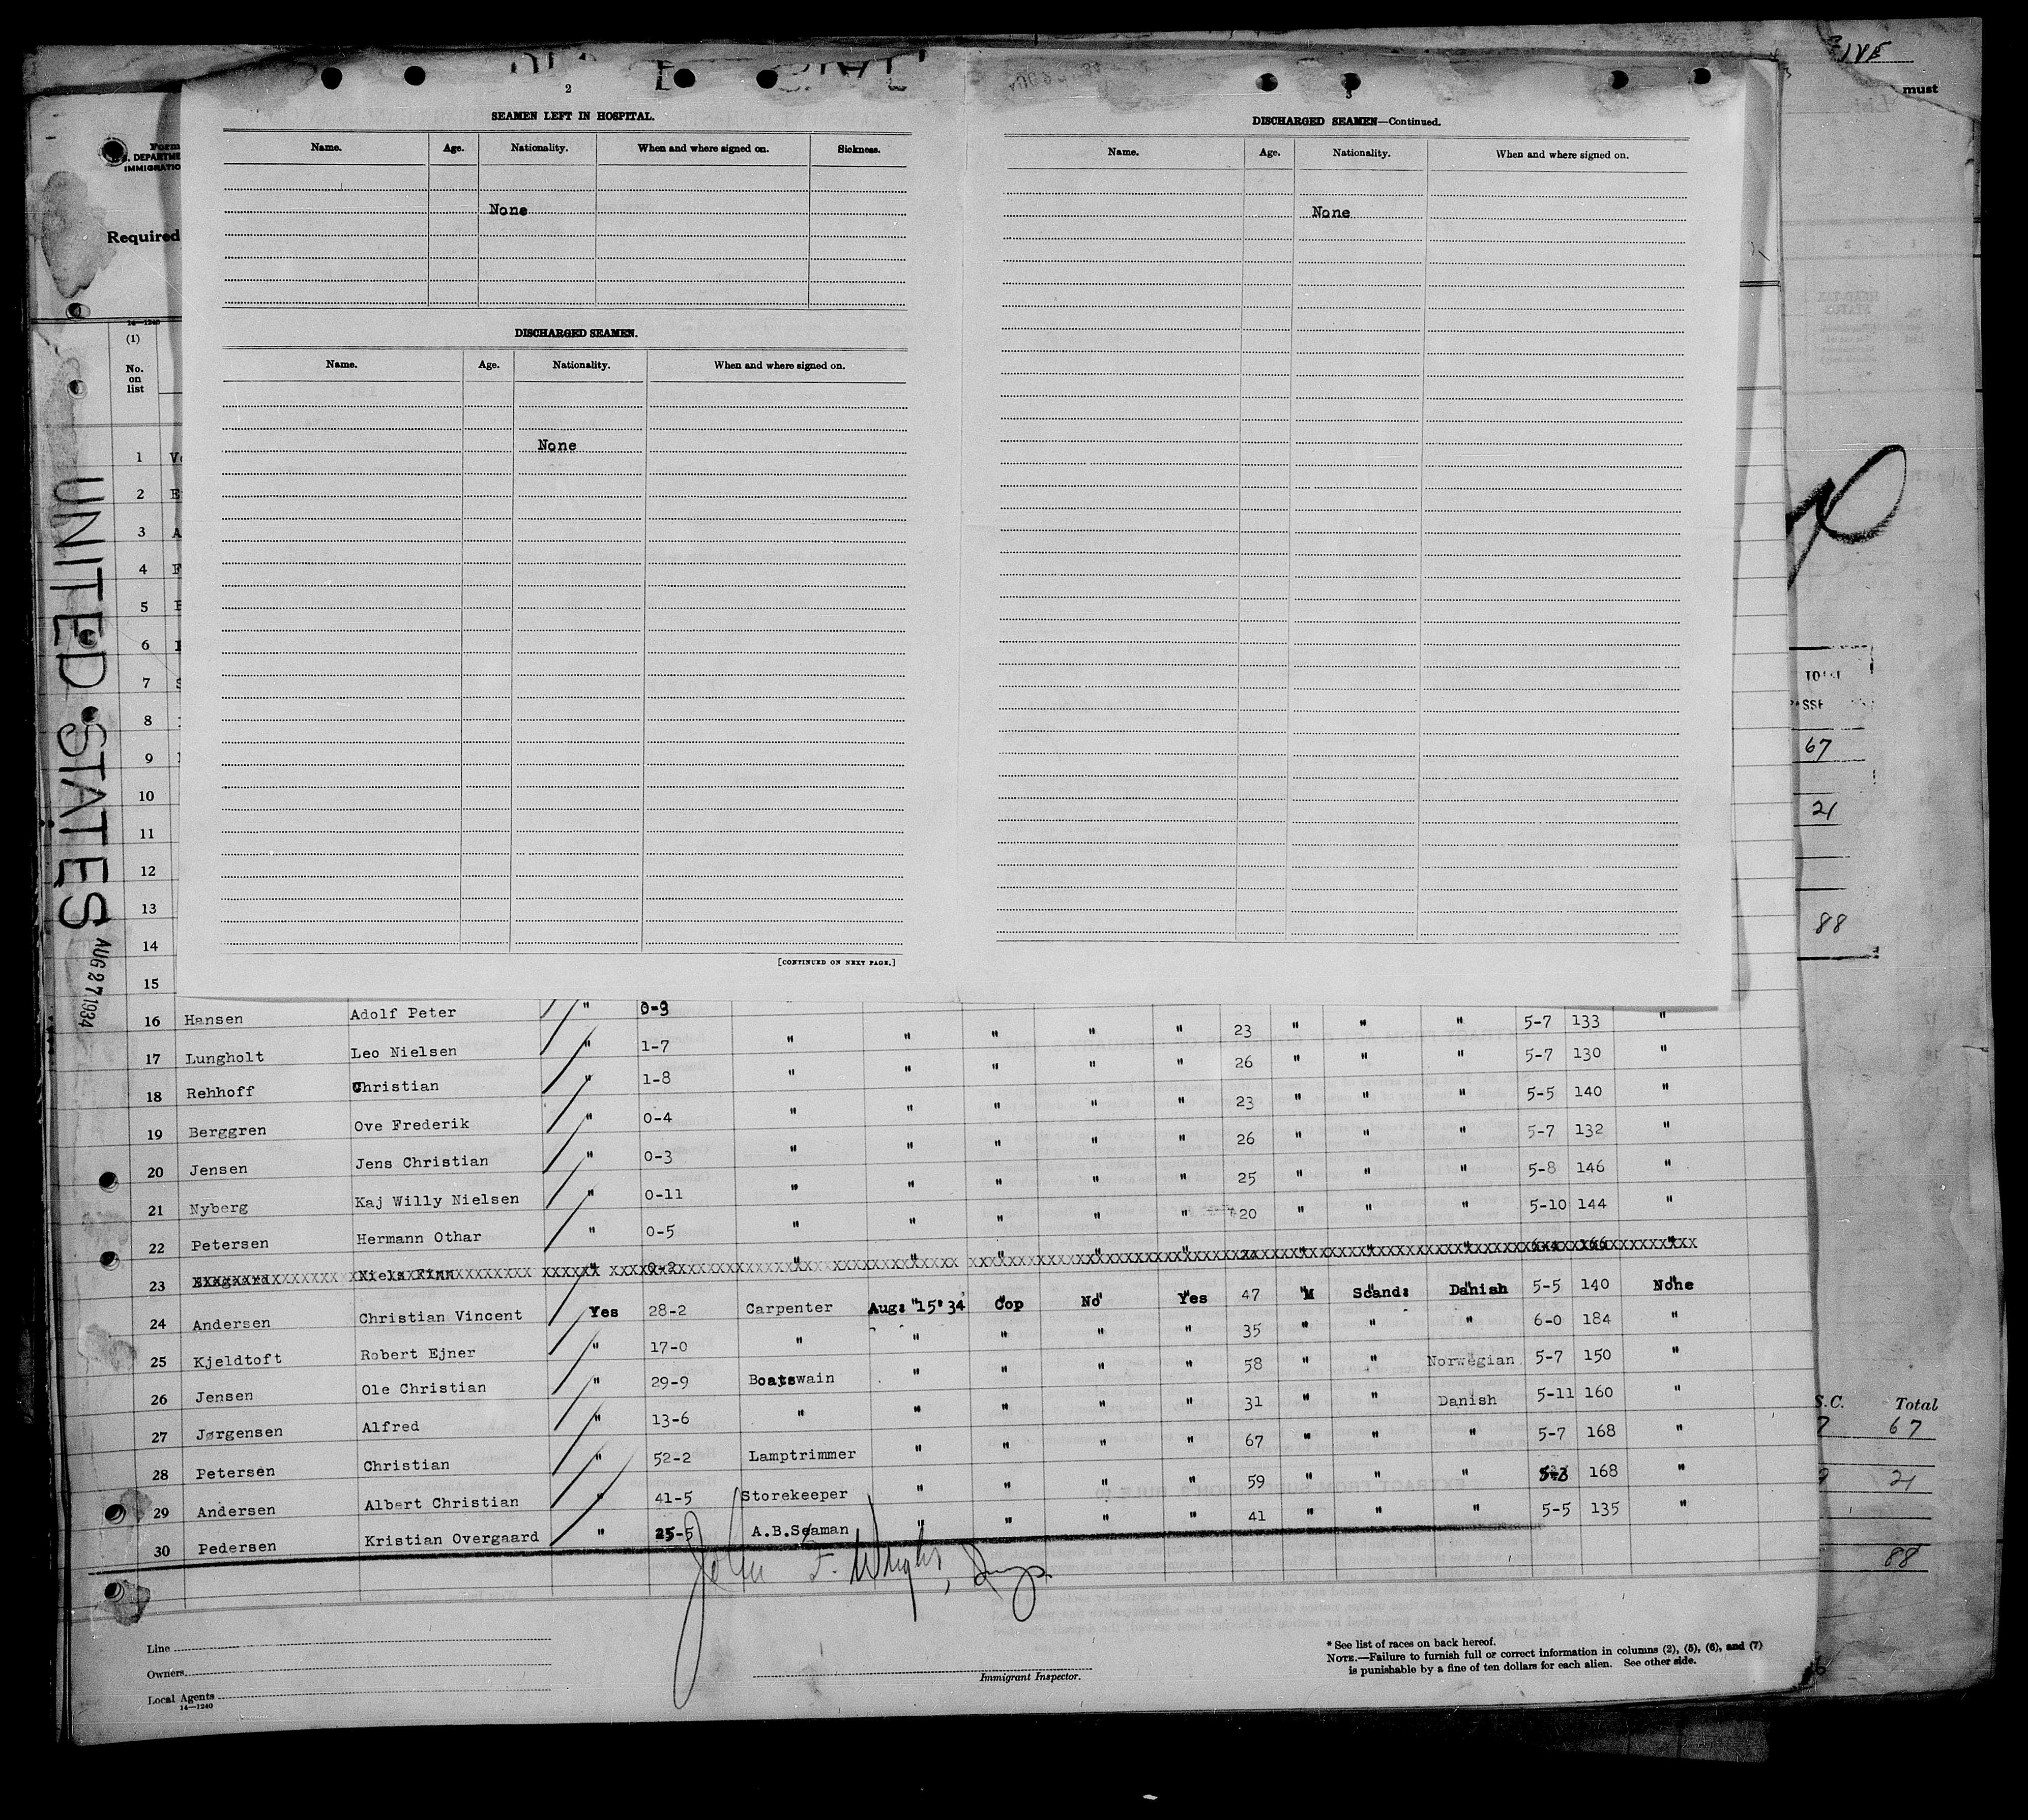 2
SEAMEN LEFT IN HOSPITAL.
Name. Age. Nationality. When and where signed on. Sickness.
None
DISCHARGED SEAMEN.
Name. Age. Nationality. When and where signed on.
None
[CONTINUED ON NEXT PAGE.]
3
DISCHARGED SEAMEN—Continued.
Name. Age. Nationality. When and where signed on.
None
must
Form
Required
14—1240
(1)
No.
on
list
1
2
3
4
5
6
7
8
9
10
11
12
13
14
15
UNITED STATES
AUG 27 1934
16 Hansen Adolf Peter " 0-9 " " " " " 23 " " " 5-7 133 "
17 Lungholt Leo Nielsen " 1-7 " " " " " 26 " " " 5-7 130 "
18 Rehhoff Christian " 1-8 " " " " " 23 " " " 5-5 140 "
19 Berggren Ove Frederik " 0-4 " " " " " 26 " " " 5-7 132 "
20 Jensen Jens Christian " 0-3 " " " " " 25 " " " 5-8 146 "
21 Nyberg Kaj Willy Nielsen " 0-11 " " " " " 20 " " " 5-10 144 "
22 Petersen Hermann Othar " 0-5
23 Niels Finn " 0-2
24 Andersen Christian Vincent Yes 28-2 Carpenter Aug: 15' 34 Cop No Yes 47 M Scand: Danish 5-5 140 None
25 Kjeldtoft Robert Ejner " 17-0 " " " " " 35 " " " 6-0 184 "
26 Jensen Ole Christian " 29-9 Boatswain " " " " 58 " " Norwegian 5-7 150 "
27 Jørgensen Alfred " 13-6 " " " " " 31 " " Danish 5-11 160 "
28 Petersen Christian " 52-2 Lamptrimmer " " " " 67 " " " 5-7 168 "
29 Andersen Albert Christian " 41-5 Storekeeper " " " " 59 " " " 168 "
30 Pedersen Kristian Overgaard " 25-5 A.B.Seaman " " " " 41 " " " 5-5 135 "
John F. Wright, Insp
Line
Owners
Local Agents
14—1240
Immigrant Inspector.
* See list of races on back hereof.
NOTE.—Failure to furnish full or correct information in columns (2), (5), (6), and (7)
is punishable by a fine of ten dollars for each alien. See other side.
67
21
88
S.C. Total
67
21
88